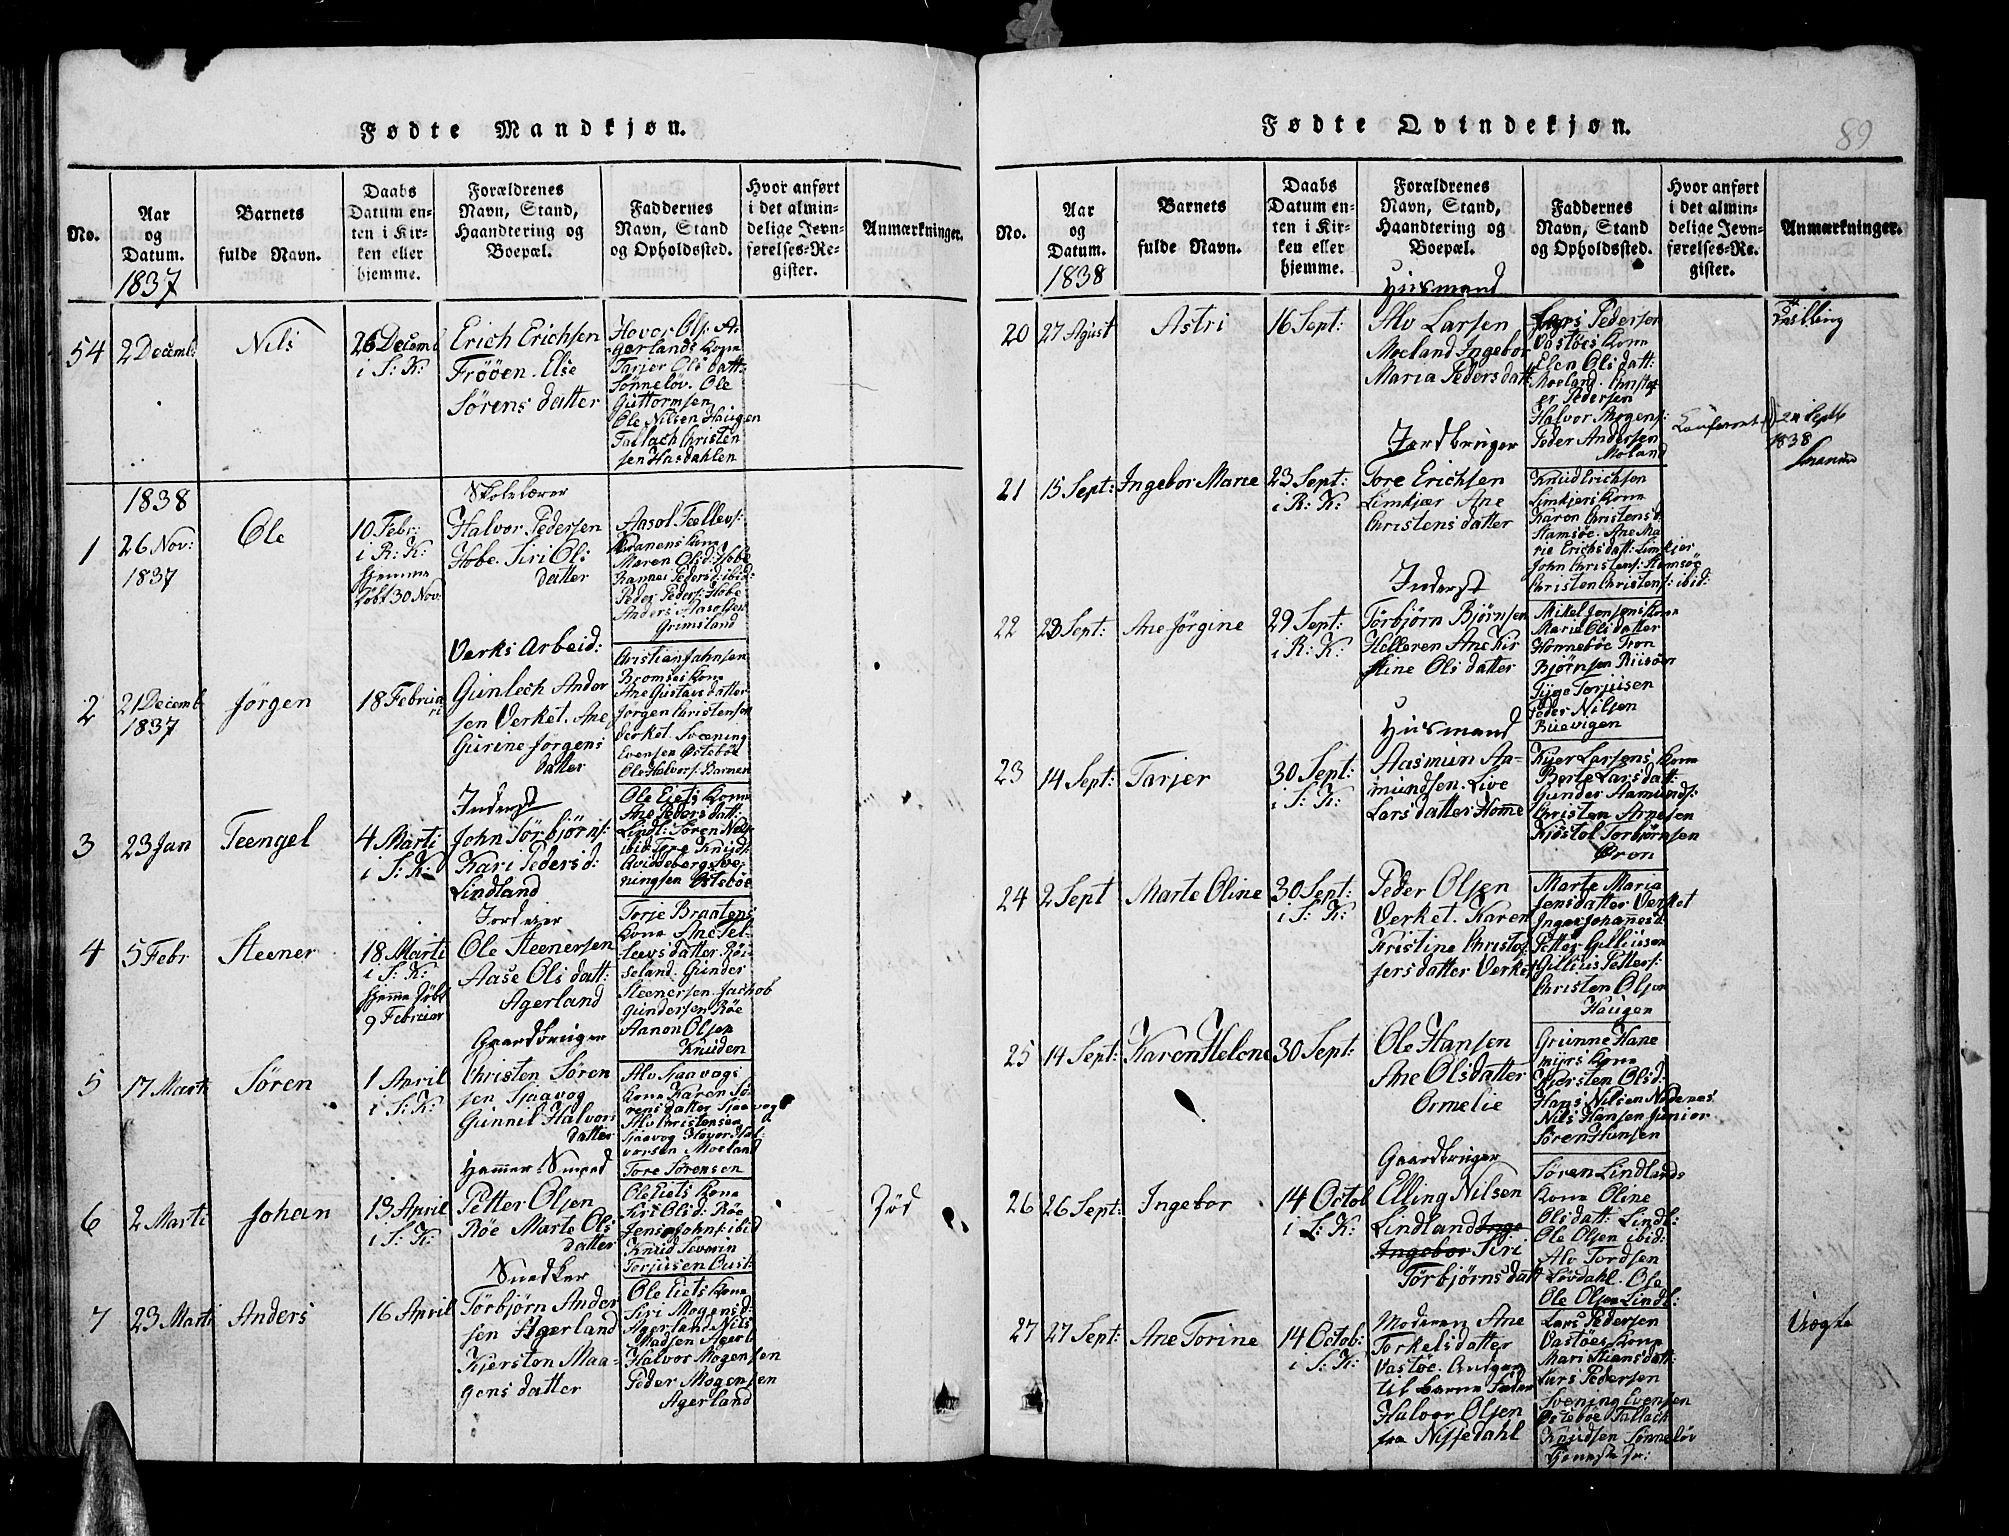 Fødte Mandkjøn.
No.
Aar
og
Datum.
1837
Barnets
fulde Navn.
Daabs
Datum en-
ten i Kir-
ken eller
hjemme.
Forældrenes
Navn, Stand,
Haandtering og
Boepæl.
Faddernes
Navn, Stand
og Opholdssted.
Hvor anført
i det almin-
delige Jevn-
førelses-Re-
gister.
Anmærkninger.
54
2 Decemb:
Nils
26 Decemb
i S: K:
Erich Erichsen
Frøöen. Else
Sørens datter
Hovor Ols: A-
gerlands Kone
Tarjer Ols datt:
Sønneløv. Ole
Guttormsen
Ole Nilsen Haugen
Tallach Christen
sen Hasdahlen
1838
1
26 Nov:
1837
Ole
10 Febr:
i R: K:
hjemme
døbt 30 Nov
Skolelærer
Halvor Pedersen
Hobe. Siri Ols
datter
Aasol Tellevs:
Kone
Maren Olsd: Hobe
Peders d: ibid:
Peder Peders: Hobe
Anders Aasolsen
Grimsland
2
21 Decemb
1837
Jørgen
18 Februa
ri
Verks Arbeid:
Gunlech Ander
sen Verket. Ane
Gurine Jørgens
datter
Christian Jahnsen
Bromses Kone
Ane Gustavs datter
Jørgen Christensen
Verket. Svening
Evensen Østeböe
Ole Halvors: Barnen
3
23 Jan
Teengel
4 Marti
i S: K:
Inderst
John Törbjörns:
Kari Peders d:
Lindland
Ole Eiets Kone
Ane Peders datt:
Lindl: Søren Nels:
ibid Tore Knuds:
Sve-
ningsen Østeböe
4
5 Febr
Steener
18 Marti
i S: K:
hjemme døbt
9 Februar
Jordeier
Ole Steenersen
Aase Ols datt:
Agerland
Torje Braatens
Kone Ane Tel-
levs datter Röi-
seland. Gunder
Steenersen. Jachob
Gundersen Röe
Aanon Olsen
Knuden
5
17 Marti
Søren
1 April
i S: K:
Gaardbruger
Christen Søren
sen Sjaavog
Gunnil Halvors
datter
Alv Saavogs
Kone Karen Sø-
rens datter Sjaavog
Alv Christensen
Sjaavog Hovor Hal-
vorsen Moeland
Tore Sørensen
6
2 Marti
Johan
13 April
i S: K:
Hammer Smed
Petter Olsen
Röe Marte Ols
datter
Ole Eiets Kone
Kirs Olsd: Röe
Jens John: ibid
Knud Severin
Torjusen Oust:
Död
7
23 Marti
Anders
16 April
Snedker
Törbjörn Ander
sen Agerland
Kjersten Maa-
gens datter
Ole Eiets Kone
Siri Mogensd:
Agerland Nils
Madsen Agerl:
Halvor Mogensen
Peder Mogensen
Agerland
Fødte Qvindekjøn.
89
No.
Aar
og
Datum.
1838
Barnets
fulde Navn.
Daabs
Datum en-
ten i Kir-
ken eller
hjemme.
Forældrenes
Navn, Stand,
Haandtering og
Boepæl.
Faddernes
Navn, Stand
og Opholdssted.
Hvor anført
i det almin-
delige Jevn-
førelses-Re-
gister.
Anmærkninger.
20
27 Agust
Astri
16 Sept:
Husmand
Alv Larsen
Moeland Ingebor
Maria Peders datt:
Lars Pedersen
Vastöes Kone
Elen Ols datt:
Moeland. Christof
er Pedersen
Halvor Mogens:
Peder Andersen
Moland
Tvilling
24 Septb
1838
21
15 Sept:
Ingebor Marie
23 Sept:
i R: K:
Jordbruger
Tore Erichsen
Limkjær Ane
Christens datter
Knud Erichsen
Limkjers Kone
Karon Christens d:
Stamsöe: Ane Ma
rie Erichs datt: Limkjer
John Christens: Stamsöe
Christen Christens: ibid:
22
23 Sept:
Ane Jørgine
29 Sept:
i R: K:
Inderst
Törbjörn Bjørnsen
Helleren Ane Kir
stine Ols datter
Mikel Jensens Kone
Marie Ols datter
Hönneböe Tron
Bjørnsen Riisöen
Tyge Torjusen
Peder Nilsen
Buevigen
23
14 Sept:
Tarjer
30 Sept:
i S: K:
Husmand
Aasmun Aa-
mundsen. Live
Lars datter Home
Kjer Larsens Kone
Berte Lars datt:
Gunder Aamunds:
Christen Arnesen
Kjöstol Torbjørnsen
Øron
24
2 Sept
Marte Oline
30 Sept:
i S: K:
Peder Olsen
Verket. Karen
Kristine Christof
fersdatter Verket
Marte Maria
Jensdatter Verket
Inger Johanesd:
Petter Gilliusen
Gillius Petters:
Christen Olsen
Haugen
25
14 Sept:
Karen Helene
30 Sept:
Ole Hansen
Ane Olsdatter
Ormelie
Grunne Hane
myrs Kone
Kjersten Olsd:
Hans Nilsen Nedenes
Nils Hansen Junior
Søren Hansen
26
26 Sept:
Ingebor
14 Octob
i S: K:
Gaardbruger
Elling Nilsen
Lindland Inge
Ingebor Siri
Törbjörns datt
Søren Lindlands
Kone Oline
Ols datt: Lindl:
Ole Olsen ibid:
Alv Tordsen
Lövdahl. Ose
Ole Olsen Lindl:
27
27 Sept:
Ane Torine
14 Octob:
i S: K:
Moderen Ane
Torkelsdatter
Vastöe. Angiven
til Barne Fader
Halvor Olsen
fra Nissedahl
Lars Pedersen
Vastöes Kone
Mari Stians datt:
Lars Pedersen
Svening Evensen
Østeböe Tallach
Knudsen Sönneløv
Uægte